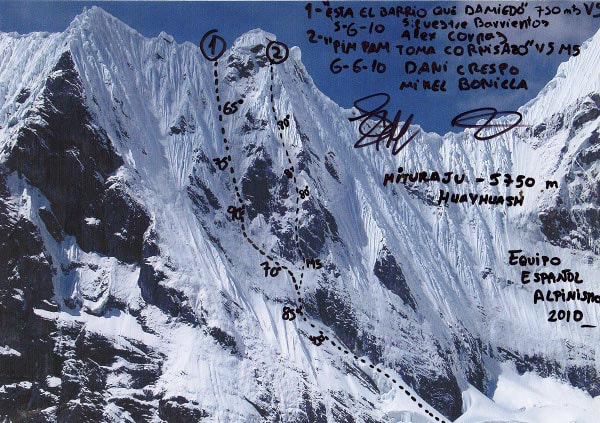 1-"ESTA EL BARRIO QUE DAMIEDO" 750 mts VS
5-6-10 Silvestre Barrientos
ALEX CORPAS
2-"PIM PAM TOMA CORNISAZO" VS M5
6-6-10 DANI CRESPO
MIKEL BONILLA
1
2
65°
70°
75°
90°
90°
70°
M5
85°
MITURAJU - 5750 m
HUAYHUASH
EQUIPO
ESPAÑOL
ALPINISMO
2010